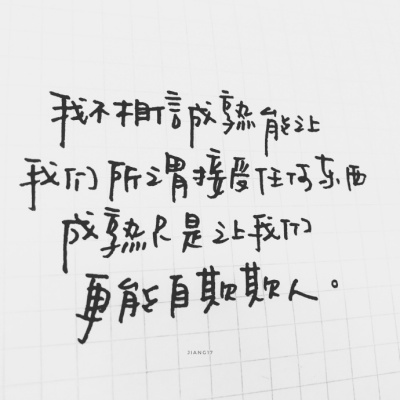 我不相信成熟能让
我们所谓接受任何东西
成熟只是让我们
更能自欺欺人。
JIANG17